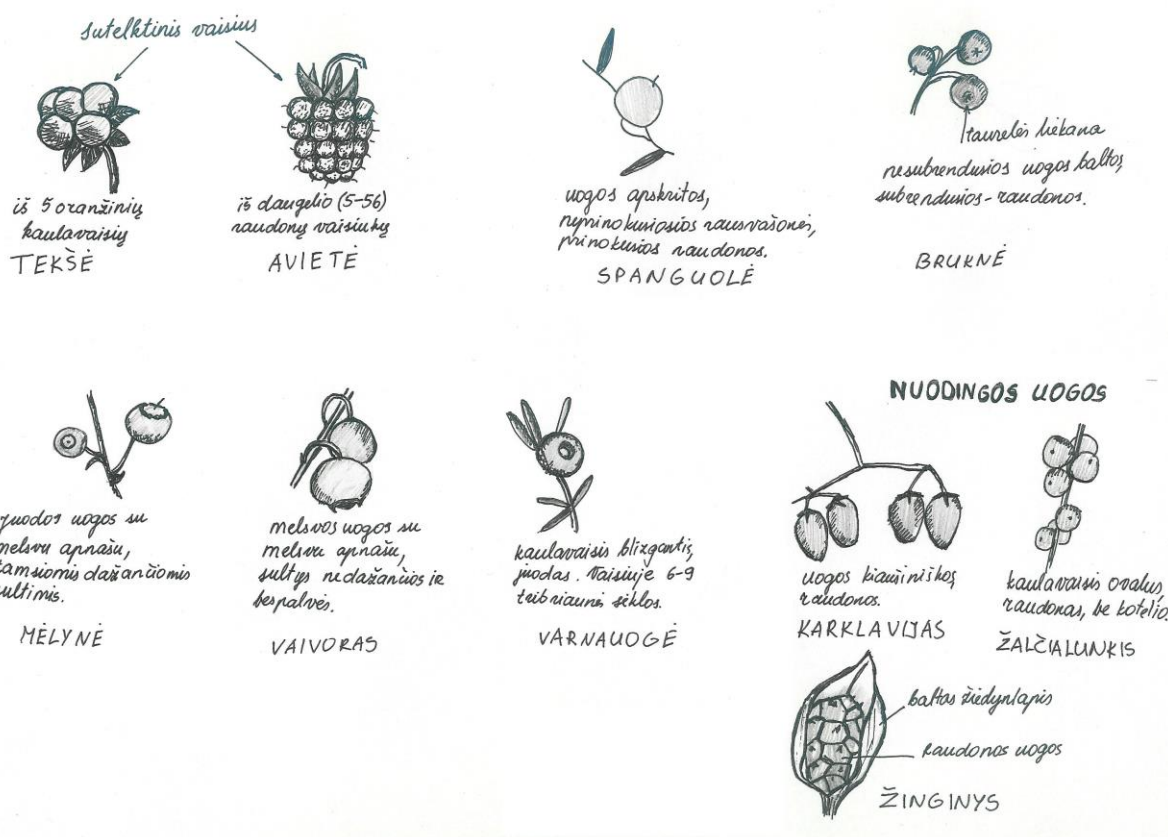 sutelktinis vaisius
iš 5 oranžinių
kaulavaisių
TEKŠĖ
iš daugelio (5-56)
raudonų vaisiukų
AVIETĖ
uogos apskritos,
neprinokusiosios rausvašonės,
prinokusios raudonos.
SPANGUOLĖ
taurelės liekana
nesubrendusios uogos baltos,
subrendusios - raudonos.
BRUKNĖ
juodos uogos su
melsvu apnašu,
tamsiomis dažančiomis
sultimis.
MĖLYNĖ
melsvos uogos su
melsvu apnašu,
sultys nedažančios ir
bespalvės.
VAIVORAS
kaulavaisis blizgantis,
juodas. Vaisiuje 6-9
tribriaunės sėklos.
VARNAUOGĖ
NUODINGOS UOGOS
uogos kiaušiniškos
raudonos.
KARKLAVIJAS
kaulavaisis ovalus,
raudonas, be kotelio.
ŽALČIALUNKIS
baltas žiedynlapis
raudonos uogos
ŽINGINYS